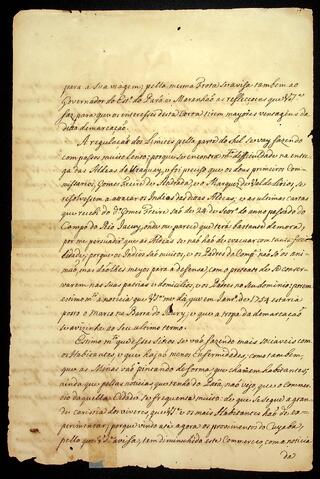 para a sua viagem; pella mesma Frota se avisa tambem ao
Governador do Est.º do Pará e Maranhaõ as reflecçoens que V. S.ª
faz, para que os interesses desta Corte tirem mayores ventagens da
dita demarcaçaõ.
A regulaçaõ dos Limites pella parte do Sul se vay fazendo
com passos muito lentos; porque se encontra m.ta difficuldade na entre-
ga das Aldeas do Uraguay, e foi preciso que os dous primeiros Com-
missarios, Gomes Freire de Andrada, e o Marquez de Valdelirios, se
resolvessem a atacar os Indios das ditas Aldeas; e as ultimas cartas
que recebi do d.º Gomes Freire saõ de 24 de do anno passado do
Campo do Rio Jacuy, onde me pareceu que terá bastante demora,
por me persuadir que as Aldeas se naõ haõ de evacuar com tanta
lidade; porque os Indios saõ muitos, e os Padres da Comp.ª naõ só os ani-
maõ, mas daõ lhes meyos para a defensa, com o pretexto de se conser-
varem nas suas patrias e domicilios, e os Padres no seu dominio; porem
estimo m.to a noticia que V. S.ª me dá, que em Janr.º de 1754 estaria
posto o marco na Barra do Jaurú, e que a tropa da demarcaçaõ
se avizinha ao seu ultimo termo.
Estimo m.to que desses Sitios se vaõ fazendo mais sociaveis com
os Habitantes, e que haja menos Enfermidades; como tambem
que as Minas vaõ pintando de forma que chamem habitantes;
ainda que pellas noticias que tenho do Pará, naõ vejo que o Commer-
cio daquella Cidade se frequenta muito: de que se segue a gran-
de carestia dos viveres que V. S.ª e os mais Habitantes haõ de ex-
perimentar; porque vindo até agora os provimentos do Cuyabá,
pello que V. S.ª avisa, tem diminuhido este Commercio, com a noticia
da